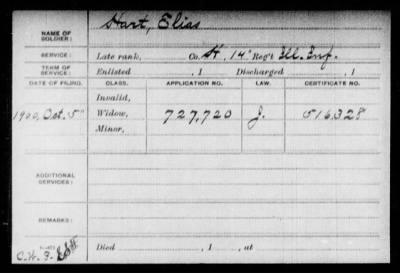 NAME OF SOLDIER: Hart, Elias
SERVICE: Late rank, Co. H, 14" Reg't Ill. Inf.
TERM OF SERVICE: Enlisted , 1 Discharged , 1
DATE OF FILING. CLASS. APPLICATION NO. LAW. CERTIFICATE NO.
Invalid,
1900, Oct. 5" Widow, 727,720 J. 516,328
Minor,
ADDITIONAL SERVICES:
REMARKS:
Died , 1 , at
C.H. 3.